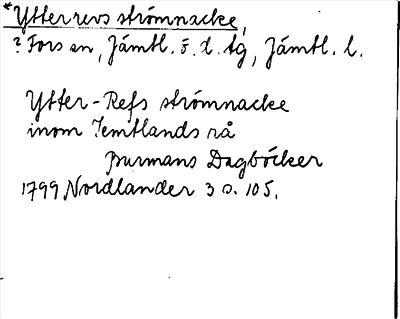 *Ytterrevs strömnacke,
? Fors en, Jämtl. ö. d. tg, Jämtl. l.
Ytter-Refs strömnacke
inom Jemtlands rå
Burmans Dagböcker
1799 Nordlander 3 s. 105.